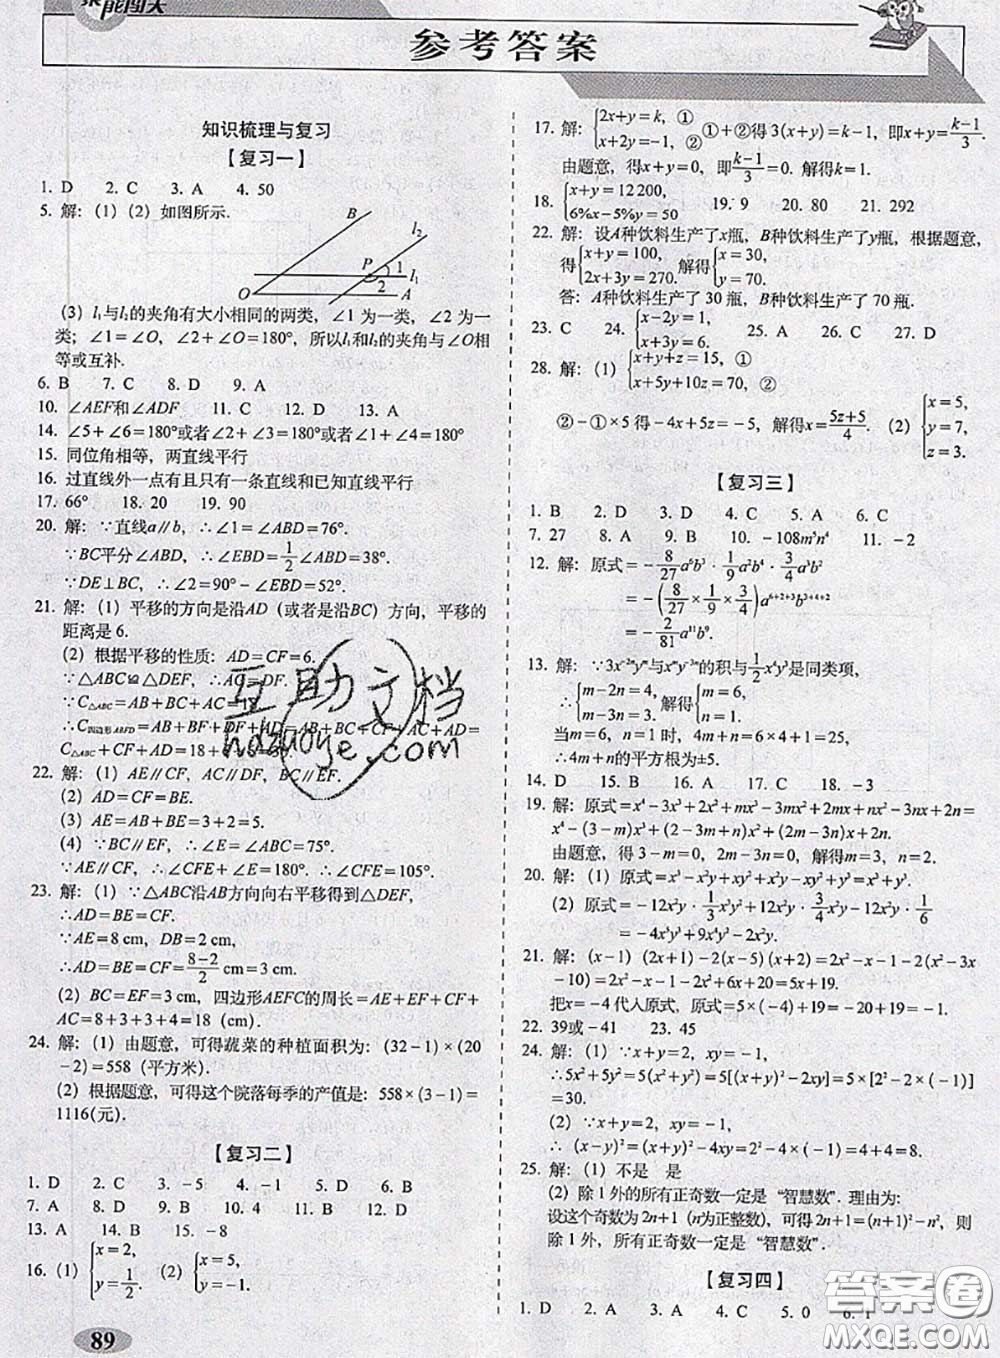 参考答案
知识梳理与复习
【复习一】
1. D  2. C  3. A  4. 50
5. 解：(1) (2) 如图所示.
B
l₂
P
1
l₁
2
O
A
(3) l₁与l₂的夹角有大小相同的两类，∠1 为一类，∠2 为一
类；∠1＝∠O，∠2＋∠O＝180°，所以l₁和l₂的夹角与∠O相
等或互补.
6. B  7. C  8. D  9. A
10. ∠AEF和∠ADF  11. C  12. D  13. A
14. ∠5＋∠6＝180°或者∠2＋∠3＝180°或者∠1＋∠4＝180°
15. 同位角相等，两直线平行
16. 过直线外一点有且只有一条直线和已知直线平行
17. 66°  18. 20  19. 90
20. 解：∵直线a∥b，∴∠1＝∠ABD＝76°.
∵BC平分∠ABD，∴∠EBD＝1/2∠ABD＝38°.
∵DE⊥BC，∴∠2＝90°－∠EBD＝52°.
21. 解：(1) 平移的方向是沿AD（或者是沿BC）方向，平移的
距离是 6.
(2) 根据平移的性质：AD＝CF＝6.
∵△ABC≌△DEF，∴AC＝DF.
∵C△ABC＝AB＋BC＋AC＝18，
∴C四边形ABFD＝AB＋BF＋DF＋AD＝AB＋BC＋CF＋AC＋AD＝
C△ABC＋CF＋AD＝18＋6＋
22. 解：(1) AE∥CF，AC∥DF，BC∥EF.
(2) AD＝CF＝BE.
(3) AB＝AE＋BE＝3＋2＝5.
(4) ∵BC∥EF，∴∠E＝∠ABC＝75°.
∵AE∥CF，∴∠CFE＋∠E＝180°，∴∠CFE＝105°.
23. 解：(1) ∵△ABC沿AB方向向右平移得到△DEF，
∴AD＝BE＝CF.
∵AE＝8 cm，DB＝2 cm，
∴AD＝BE＝CF＝(8－2)/2 cm＝3 cm.
(2) BC＝EF＝3 cm，四边形AEFC的周长＝AE＋EF＋CF＋
AC＝8＋3＋3＋4＝18（cm）.
24. 解：(1) 由题意，可得蔬菜的种植面积为：(32－1)×(20
－2)＝558（平方米）.
(2) 根据题意，可得这个院落每季的产值是：558×(3－1)＝
1116(元).
【复习二】
1. D  2. C  3. －5  4. －1  5. D  6. B
7. A  8. D  9. B  10. 4  11. B  12. D
13. A  14. B  15. －8
16. (1) {x＝2，y＝1/2.  (2) {x＝5，y＝－1.
89
17. 解：{2x＋y＝k，① x＋2y＝－1，② ①＋②得 3(x＋y)＝k－1，即x＋y＝(k－1)/3.
由题意，得x＋y＝0，即(k－1)/3＝0. 解得k＝1.
18. {x＋y＝12 200，6%x－5%y＝50  19. 9  20. 80  21. 292
22. 解：设A种饮料生产了x瓶，B种饮料生产了y瓶，根据题意，
得{x＋y＝100，2x＋3y＝270. 解得{x＝30，y＝70.
答：A种饮料生产了 30 瓶，B种饮料生产了 70 瓶.
23. C  24. {x－2y＝1，x＋3y＝6.  25. A  26. C  27. D
28. 解：(1) {x＋y＋z＝15，① x＋5y＋10z＝70，②
②－①×5 得－4x＋5z＝－5，解得x＝(5z＋5)/4. (2) {x＝5，y＝7，z＝3.
【复习三】
1. B  2. D  3. D  4. C  5. A  6. C
7. 27  8. A  9. B  10. －108m⁵n⁴  11. －2
12. 解：原式＝－8/27a⁶b³·1/9a²b⁴·3/4a³b²
＝－(8/27×1/9×3/4)a⁶⁺²⁺³b³⁺⁴⁺²
＝－2/81a¹¹b⁹.
13. 解：∵3x⁻²ᵐyⁿ与xⁿy⁻³ⁿ的积与1/2x⁴y³是同类项，
∴{m－2n＝4，m－3n＝3. 解得{m＝6，n＝1.
当m＝6，n＝1 时，4m＋n＝4×6＋1＝25，
∴4m＋n的平方根为±5.
14. D  15. B  16. A  17. C  18. －3
19. 解：原式＝x⁴－3x³＋2x²＋mx³－3mx²＋2mx＋nx²－3nx＋2n＝
x⁴－(3－m)x³＋(2－3m＋n)x²＋(2m－3n)x＋2n.
由题意，得 3－m＝0，2m－3n＝0，解得m＝3，n＝2.
20. 解：(1) 原式＝x³－x²y＋xy²＋x²y－xy²＋y³＝x³＋y³.
(2) 原式＝－12x²y·1/3x²y²＋12x²y·3/4x²y＋12x²y·1/6
＝－4x⁴y³＋9x⁴y²＋2x²y.
21. 解：(x－1)(2x＋1)－2(x－5)(x＋2)＝2x²－x－1－2(x²－3x
－10)＝2x²－x－1－2x²＋6x＋20＝5x＋19.
把x＝－4代入原式，原式＝5×(－4)＋19＝－20＋19＝－1.
22. 39或－41  23. 45
24. 解：(1) ∵x＋y＝2，xy＝－1，
∴5x²＋5y²＝5(x²＋y²)＝5[(x＋y)²－2xy]＝5×[2²－2×(－1)]
＝30.
(2) ∵x＋y＝2，xy＝－1，
∴(x－y)²＝(x＋y)²－4xy＝2²－4×(－1)＝4＋4＝8.
25. 解：(1) 不是  是
(2) 除 1 外的所有正奇数一定是“智慧数”. 理由为：
设这个奇数为 2n＋1（n为正整数），可得2n＋1＝(n＋1)²－n²，则
除 1 外，所有正奇数一定是“智慧数”.
【复习四】
1. D  2. A  3. A  4. C  5. 0  6. 1
互助文档
hdzuoye.com
答案圈
MXQE.COM